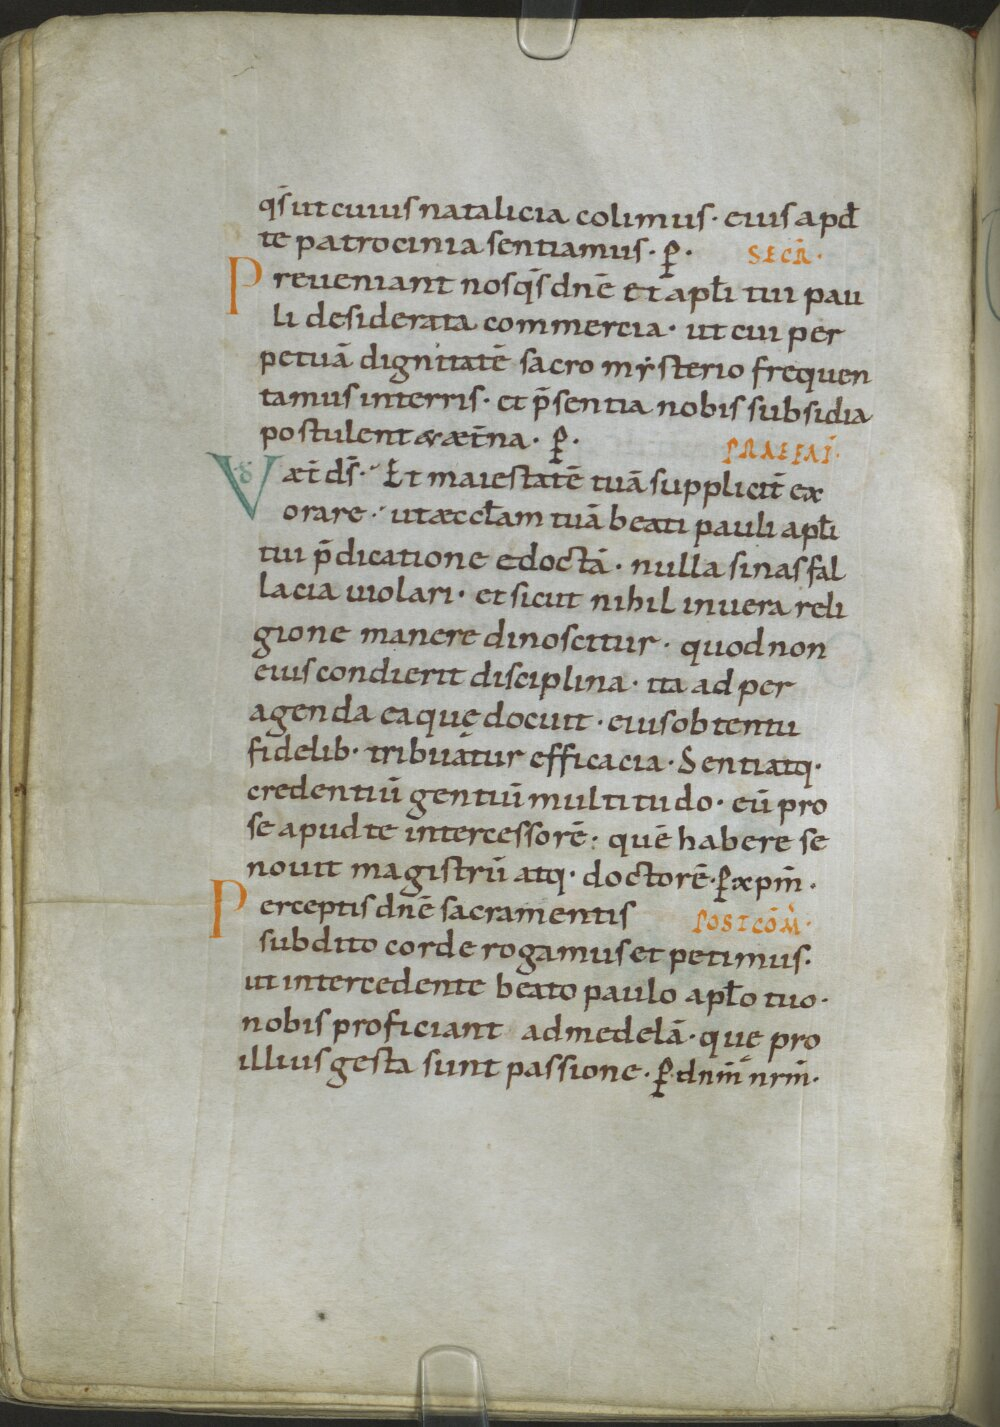 qs̄ ut cuius natalicia colimus· eius apđ
te patrocinia sentiamus· ꝑ· SECR̄·
Preueniant nos qs̄ dnē et apłi tui pau
li desiderata commercia· ut cui per
petuā dignitatē sacro mẏsterio frequen
tamus interris· et p̄sentia nobis subsidia
postulent & æt̄na· ꝑ· PRAEFAT̄·
V æt̄ ds̄· Et maiestatē tuā supplicit̄ ex
orare· ut æccłam tuā beati pauli apłi
tui p̄dicatione edoctā· nulla sinas fal
lacia uiolari· et sicut nihil inuera reli
gione manere dinoscitur· quod non
eius condierit disciplina· ita ad per
agenda ea quę docuit· eius obtentu
fidelib· tribuatur efficacia· Sentiatq·
credentiū gentiū multitudo· eū pro
se apud te intercessorē· quē habere se
nouit magistrū atq· doctorē· ꝑ xpm̄·
Perceptis dnē sacramentis POSTCOM̄·
subdito corde rogamus et petimus·
ut intercedente beato paulo apło tuo·
nobis proficiant ad medelā· quę pro
illius gesta sunt passione· ꝑ dnm̄ nrm̄·